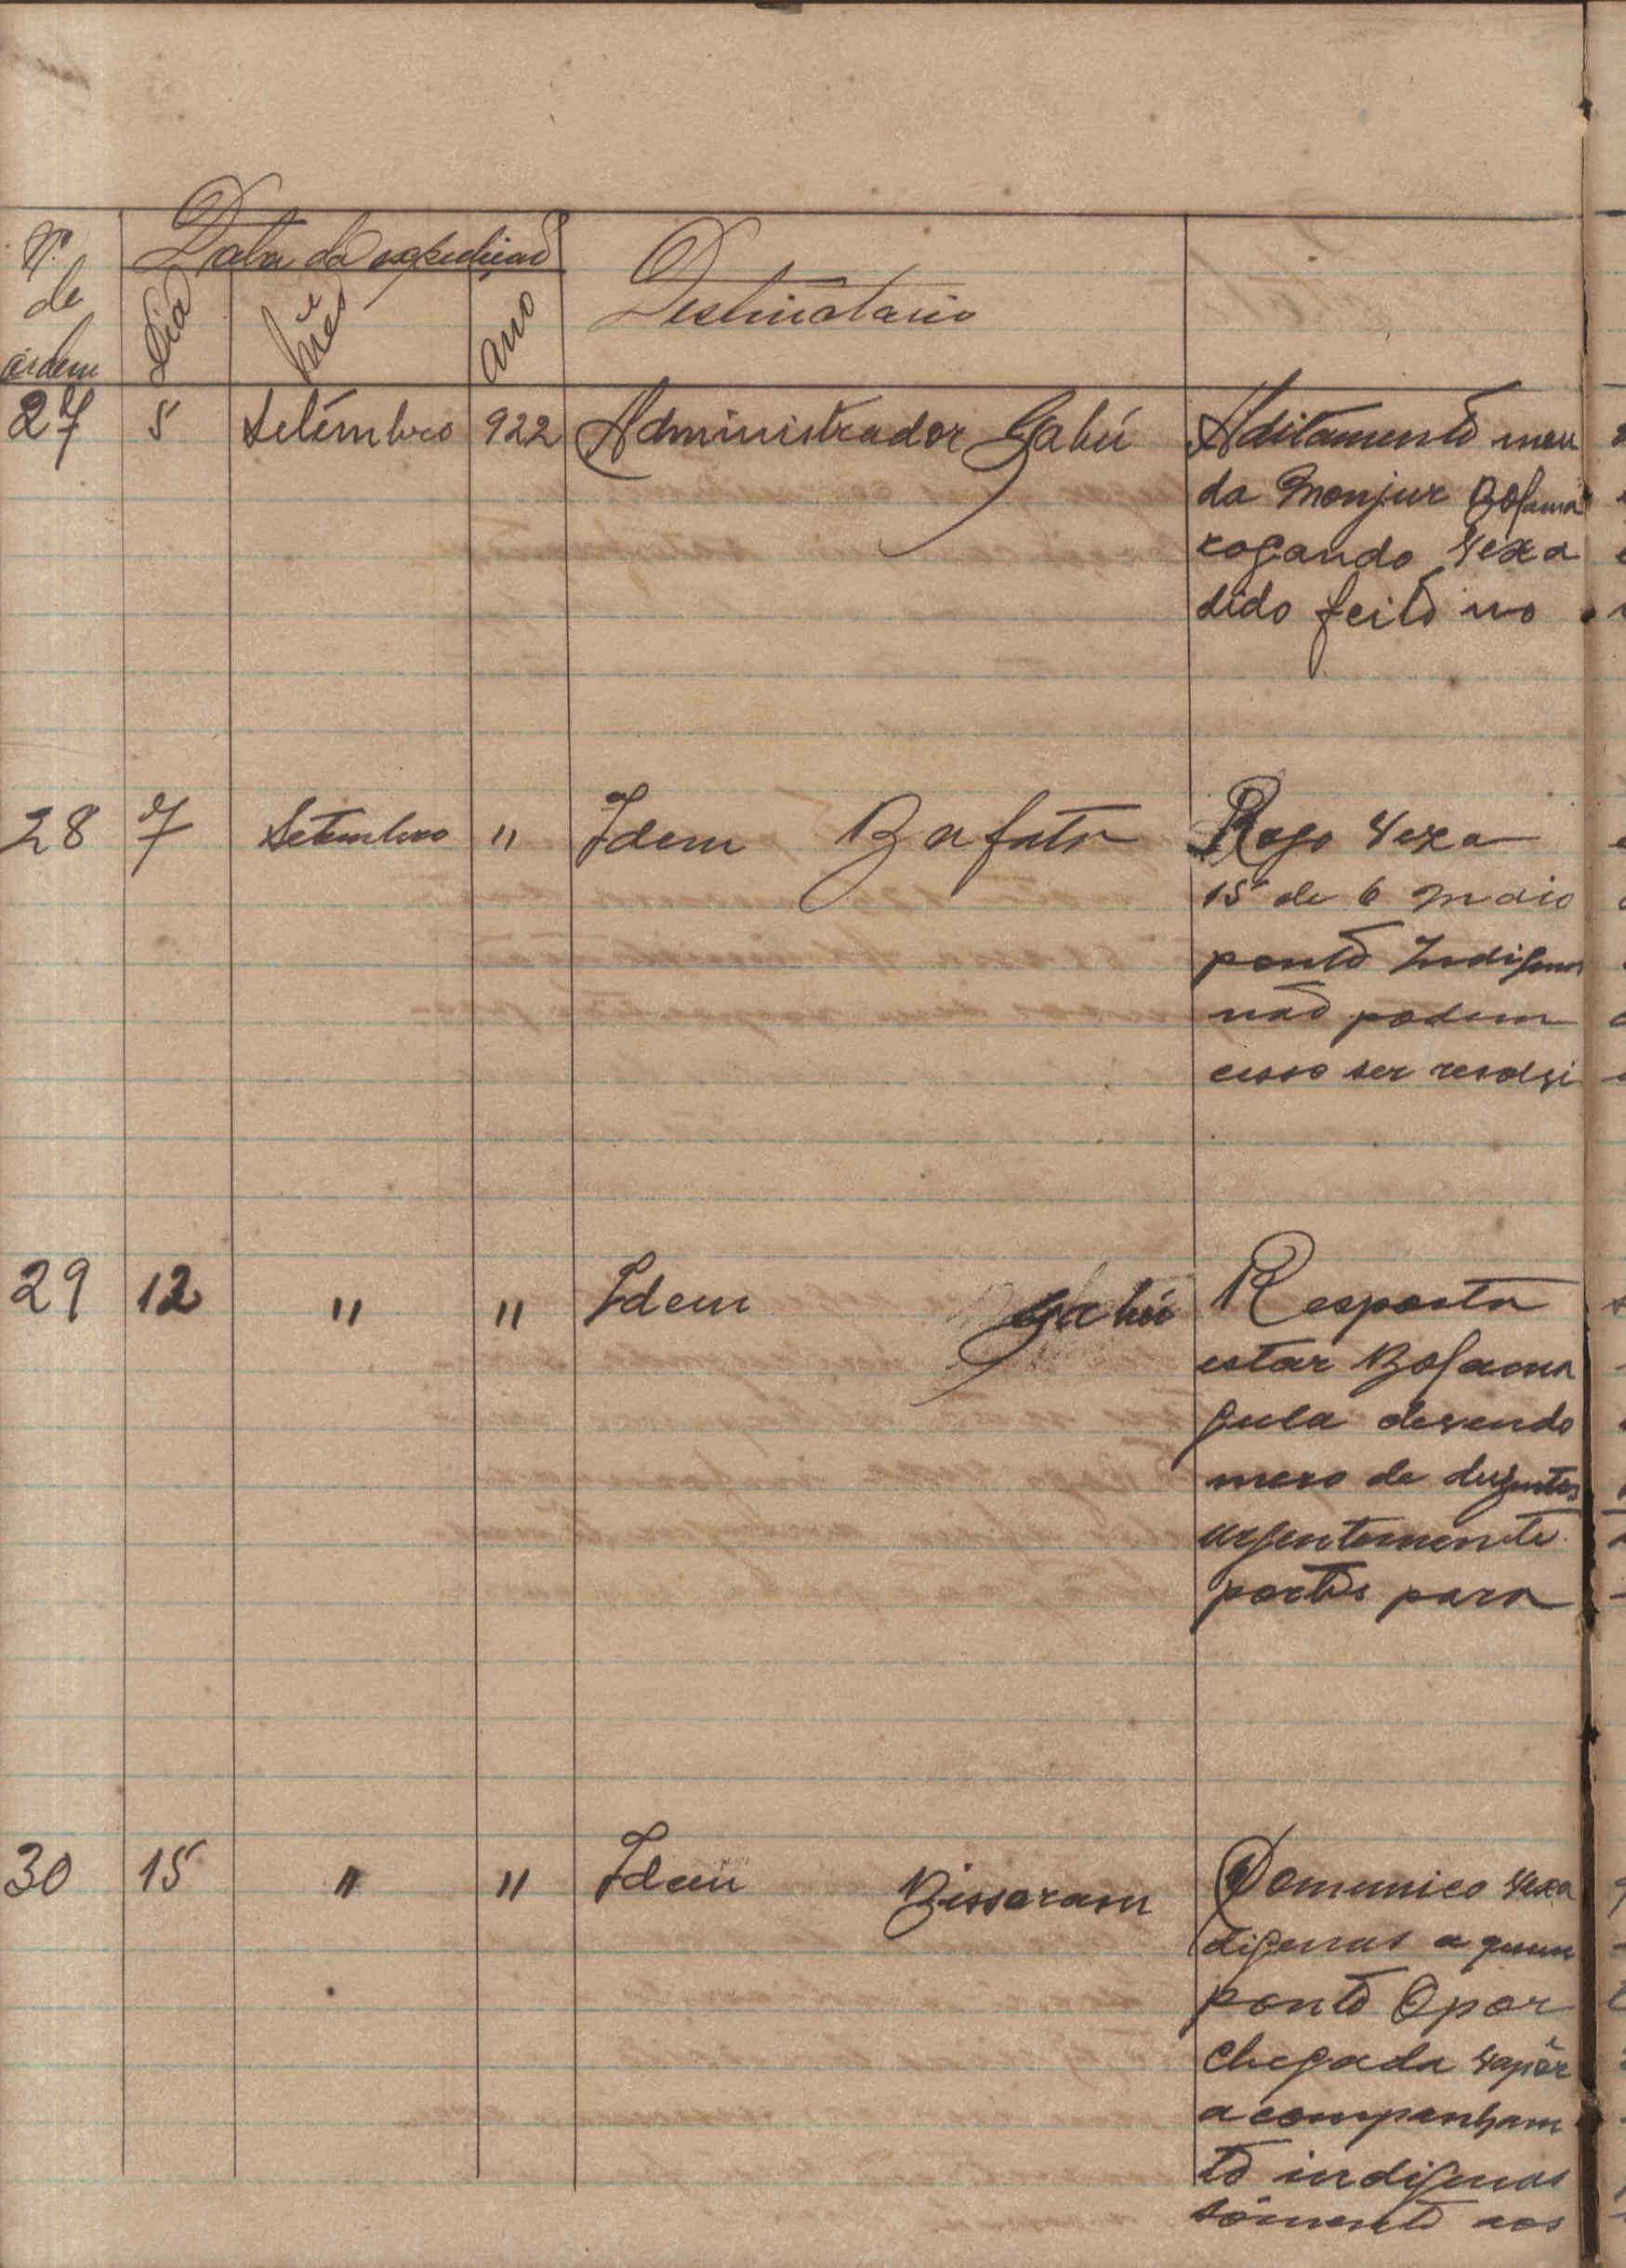 Nº de ordem
Data da expedição
Dia
Mês
Ano
Destinatario
27 5 Setêmbro 922 Administrador Gabú Aditamento meu
da Monjur Bolama
rogando Vexa
dido feito no
28 7 Setembro " Idem Bafata Rogo Vexa
15 de 6 Maio
ponto Indigenas
não podem
cesso ser resolvi
29 12 " " Idem Gabú Resposta
estar Bolama
gula devendo
mero de duzentos
urgentemente
portes para
30 15 " " Idem Bissoram Comunico Vexa
digenas a quem
ponto Opor
chegada vapôr
acompanham
to indigenas
sómente aos